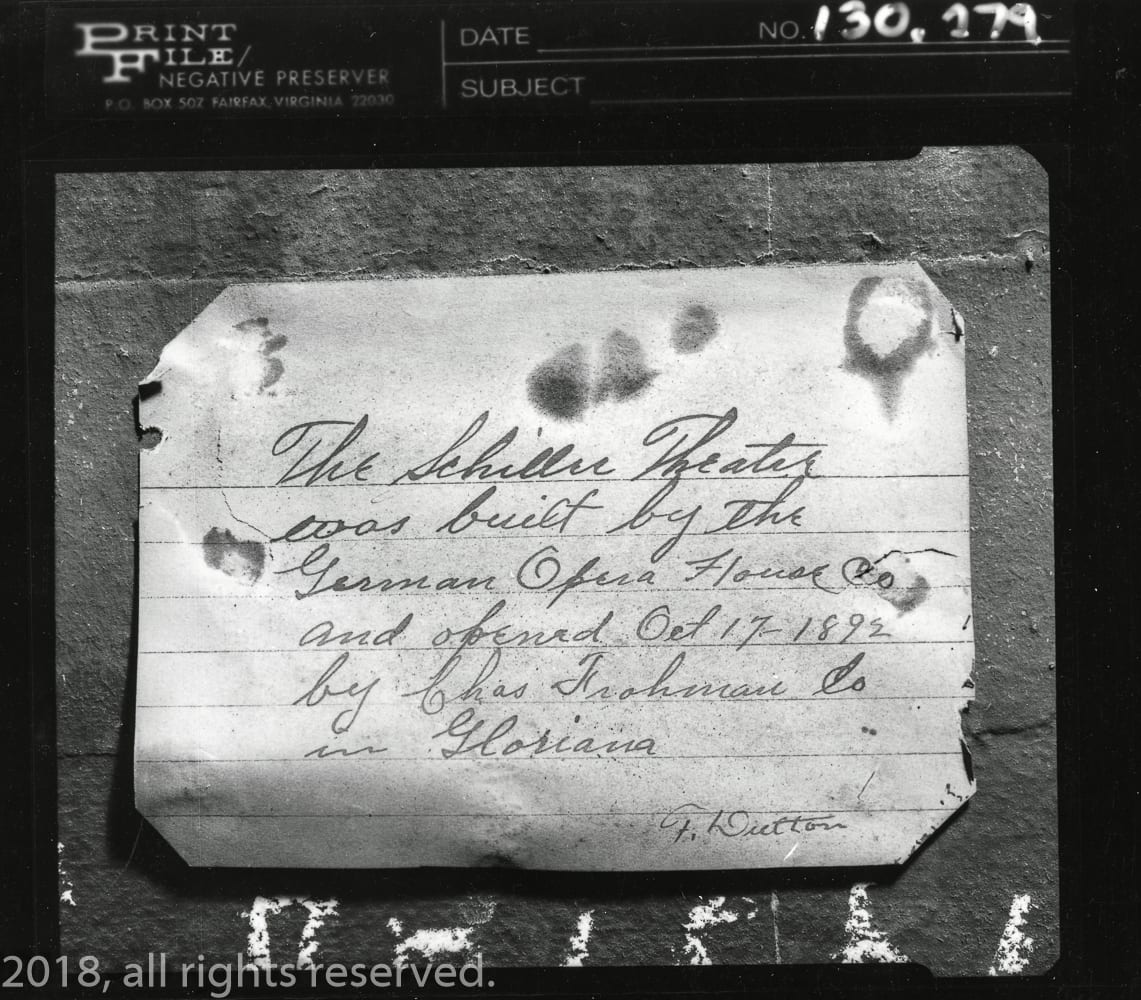 PRINT FILE/
NEGATIVE PRESERVER
P.O. BOX 507 FAIRFAX, VIRGINIA 22030
DATE
NO. 130.279
SUBJECT
The Schiller Theatre
was built by the
German Opera House Co
and opened Oct 17-1892
by Chas Frohman Co
in Gloriana
F. Dutton
2018, all rights reserved.